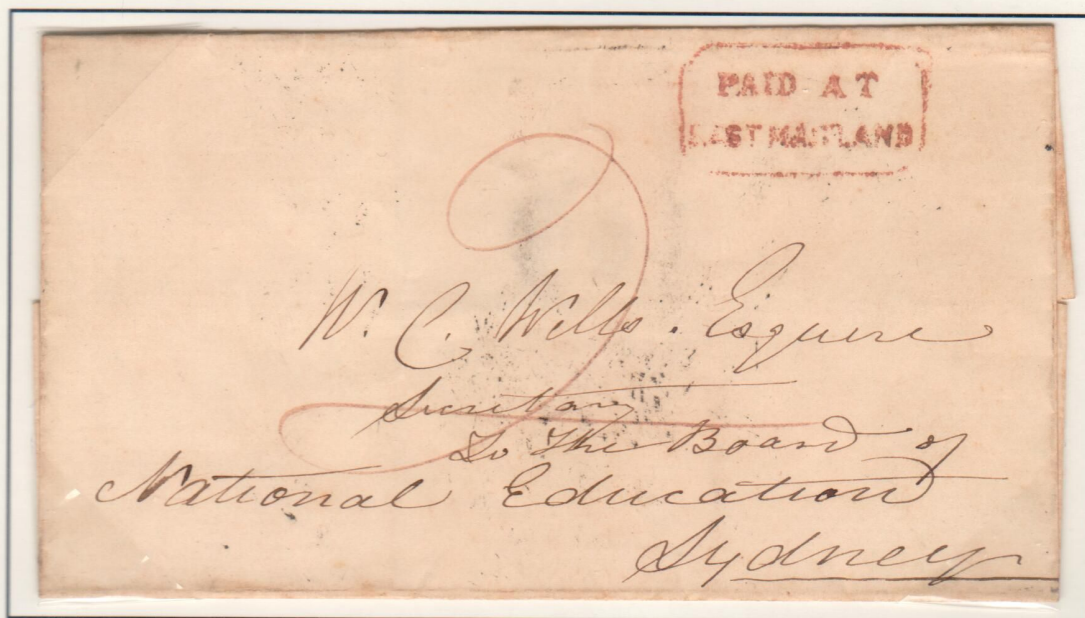 PAID AT
EAST MAITLAND
2
W. C. Wills. Esquire
Secretary
To the Board of
National Education
Sydney